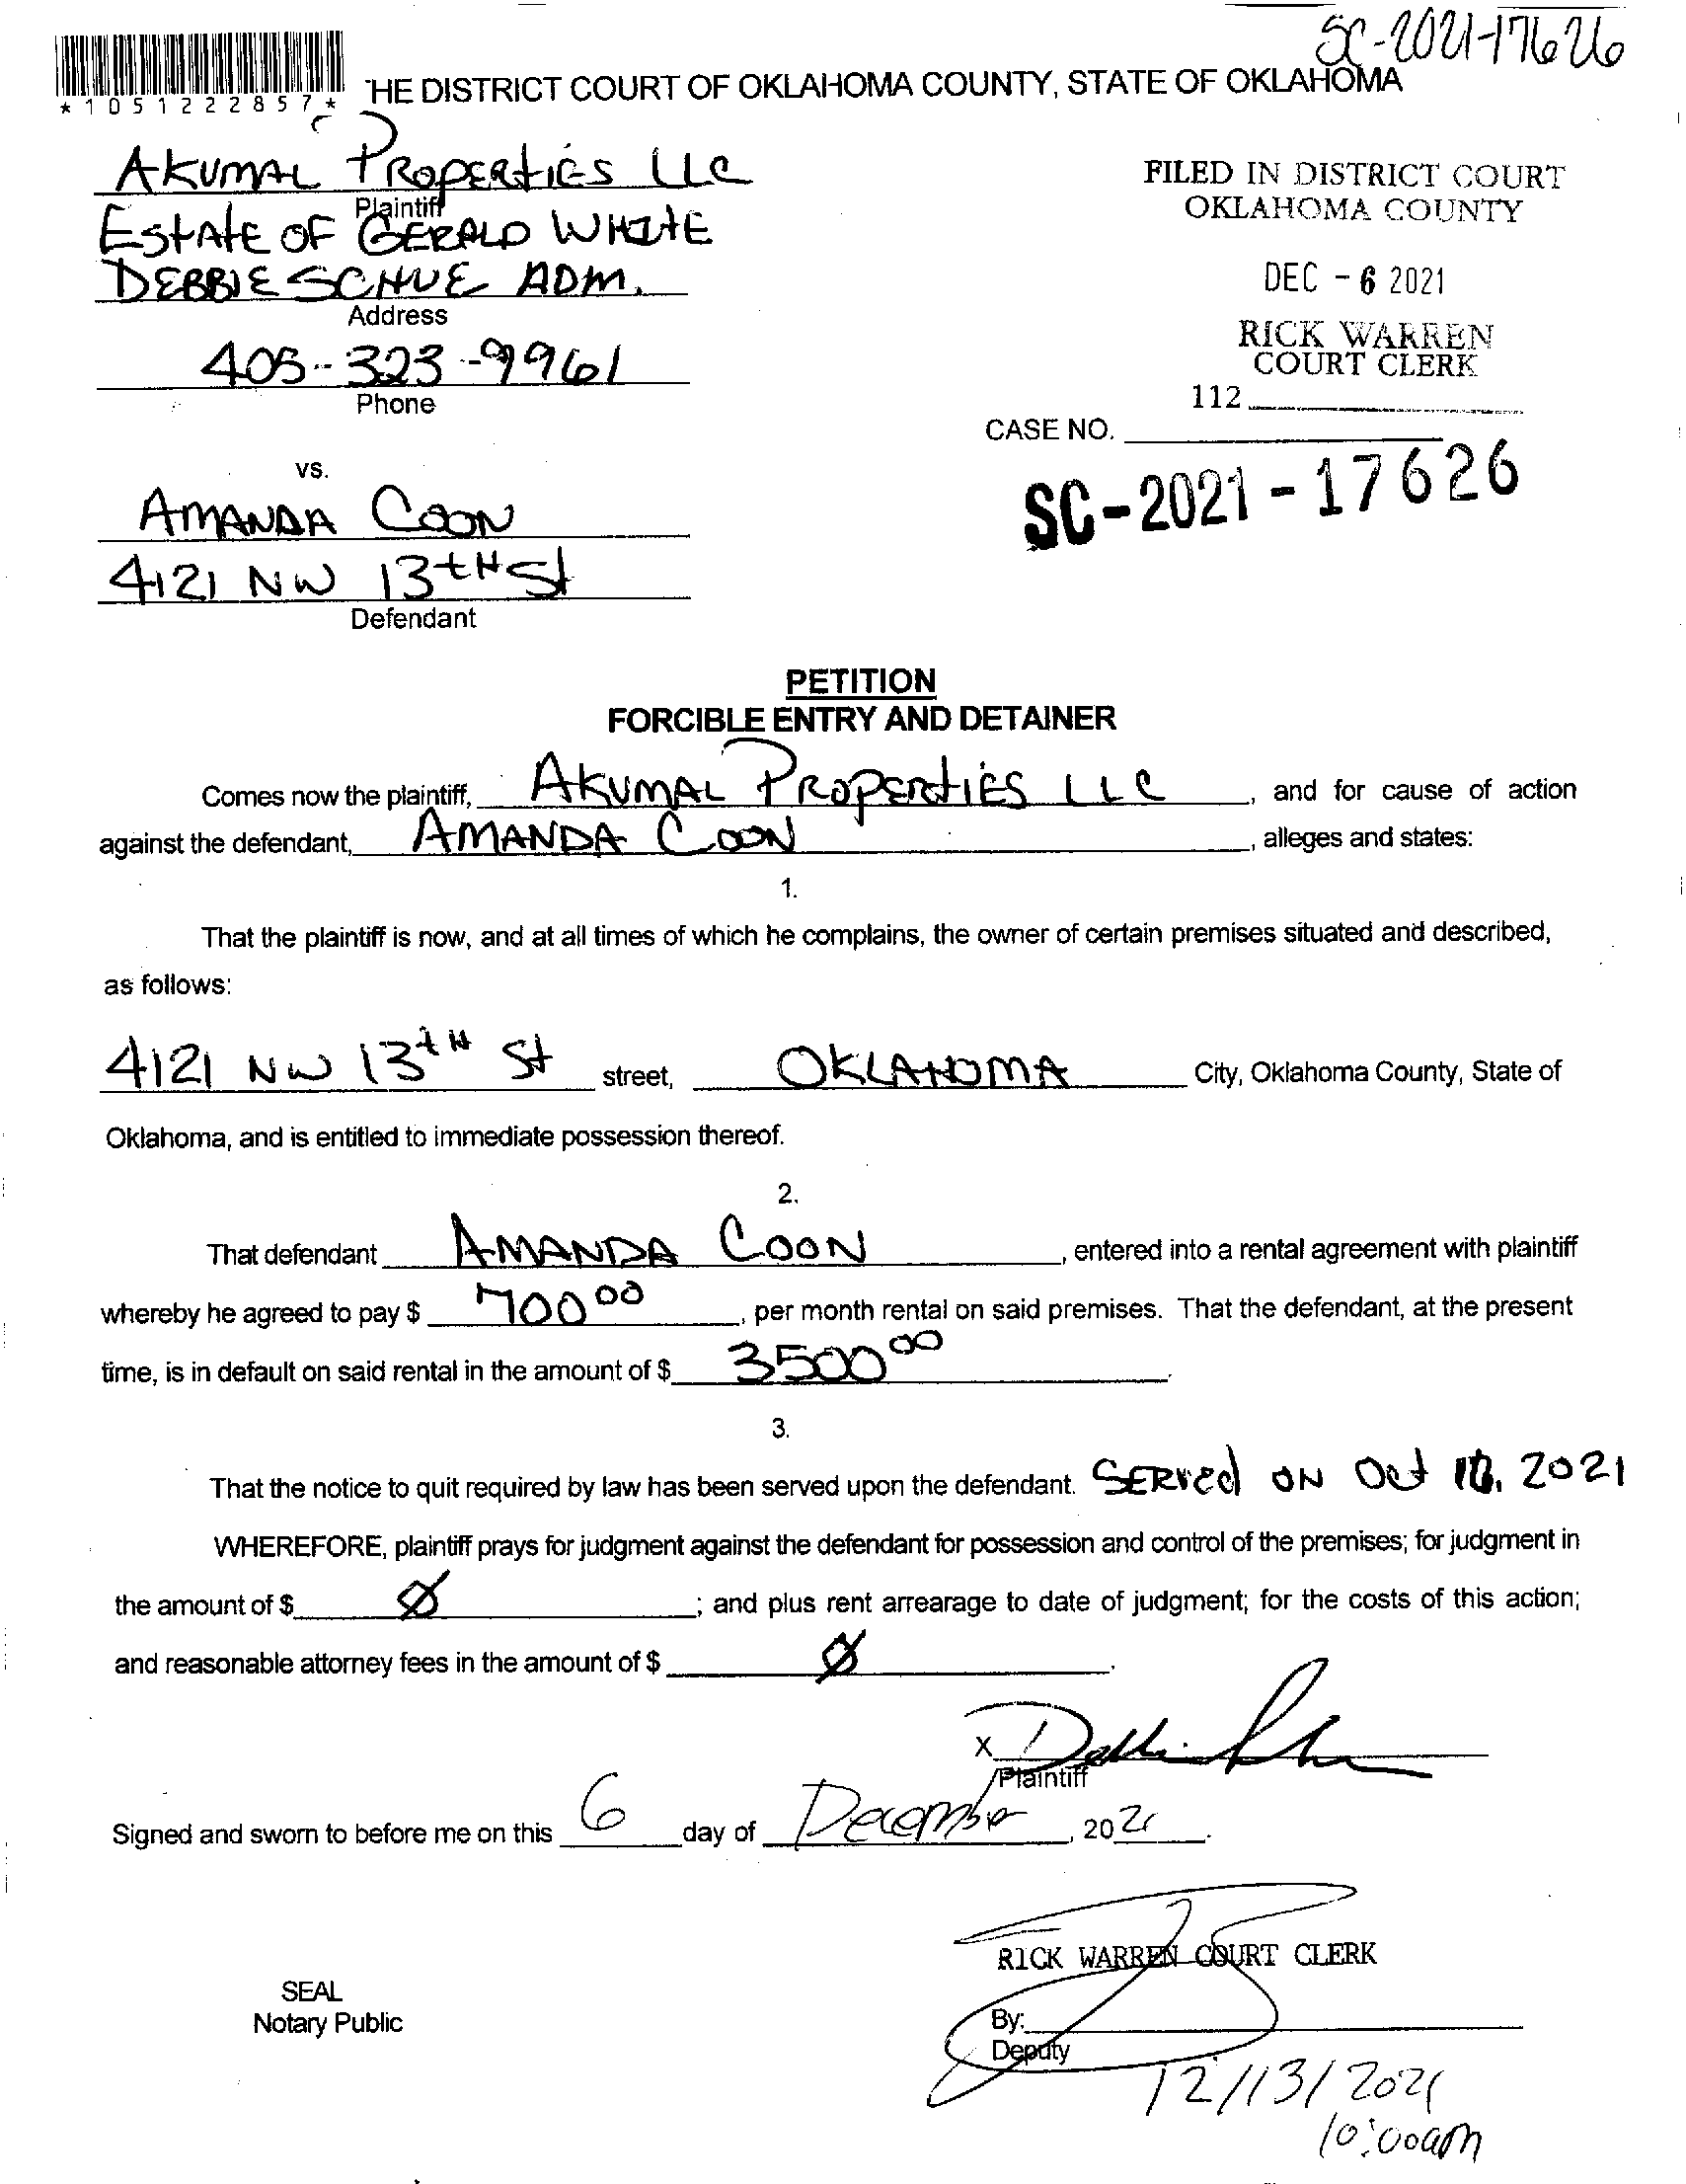 SC-2021-17626
*1051222857*
THE DISTRICT COURT OF OKLAHOMA COUNTY, STATE OF OKLAHOMA
AKUMAL PROPERTIES LLC
Plaintiff
ESTATE OF GERALD WHITE
DEBBIE SCHUE ADM.
Address
405-323-9961
Phone
FILED IN DISTRICT COURT
OKLAHOMA COUNTY
DEC - 6 2021
RICK WARREN
COURT CLERK
112
CASE NO.
SC-2021-17626
vs.
AMANDA COON
4121 NW 13tH St
Defendant
PETITION
FORCIBLE ENTRY AND DETAINER
Comes now the plaintiff, AKUMAL PROPERTIES LLC, and for cause of action
against the defendant, AMANDA COON, alleges and states:
1.
That the plaintiff is now, and at all times of which he complains, the owner of certain premises situated and described,
as follows:
4121 NW 13tH St street, OKLAHOMA City, Oklahoma County, State of
Oklahoma, and is entitled to immediate possession thereof.
2.
That defendant AMANDA COON, entered into a rental agreement with plaintiff
whereby he agreed to pay $ 700 00, per month rental on said premises. That the defendant, at the present
time, is in default on said rental in the amount of $ 3500 00.
3.
That the notice to quit required by law has been served upon the defendant. SERVED ON Oct , 2021
WHEREFORE, plaintiff prays for judgment against the defendant for possession and control of the premises; for judgment in
the amount of $ Ø; and plus rent arrearage to date of judgment; for the costs of this action;
and reasonable attorney fees in the amount of $ Ø.
X
Plaintiff
Signed and sworn to before me on this 6 day of December, 2021.
RICK WARREN COURT CLERK
SEAL
Notary Public
By:
Deputy
12/13/2021
10:00am